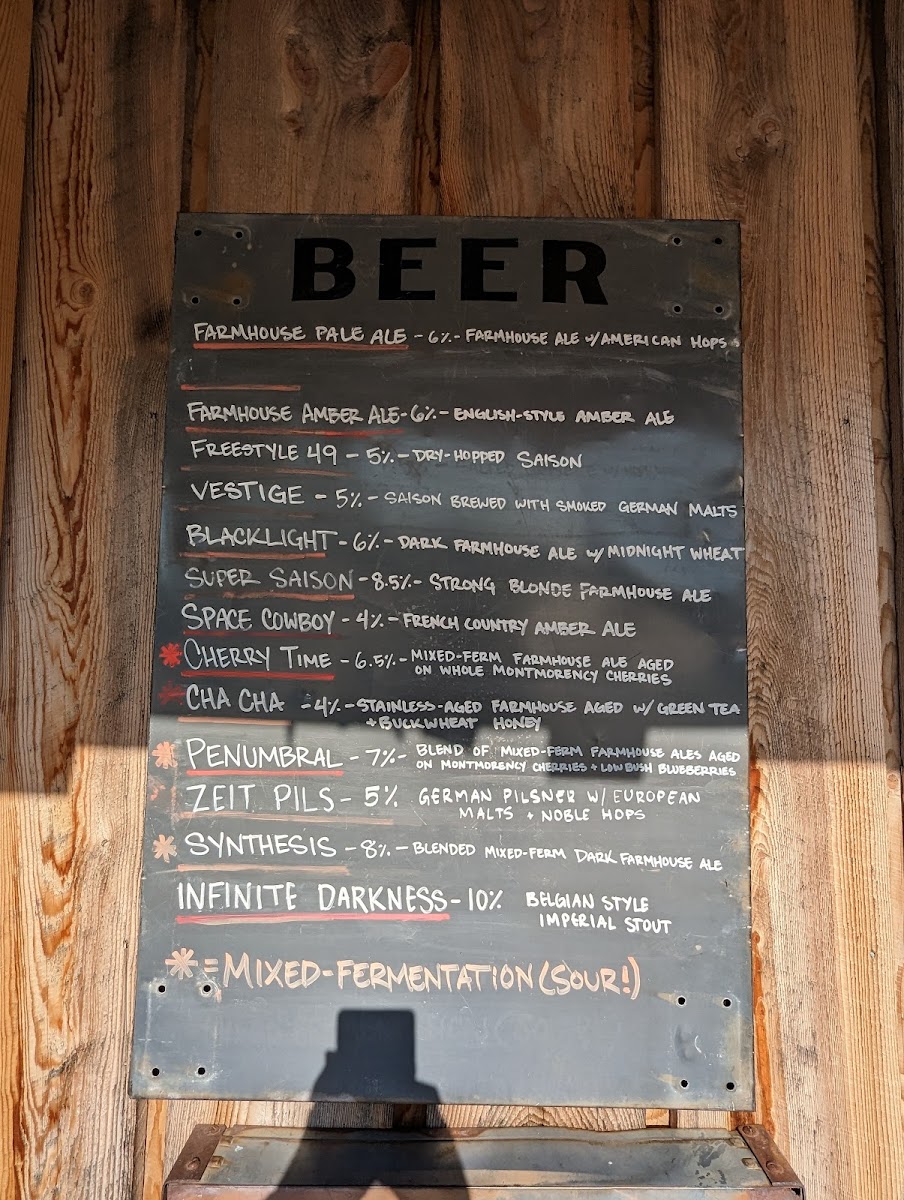 BEER
FARMHOUSE PALE ALE - 6% - FARMHOUSE ALE w/AMERICAN HOPS
FARMHOUSE AMBER ALE - 6% - ENGLISH-STYLE AMBER ALE
FREESTYLE 49 - 5% - DRY-HOPPED SAISON
VESTIGE - 5% - SAISON BREWED WITH SMOKED GERMAN MALTS
BLACKLIGHT - 6% - DARK FARMHOUSE ALE w/ MIDNIGHT WHEAT
SUPER SAISON - 8.5% - STRONG BLONDE FARMHOUSE ALE
SPACE COWBOY - 4% - FRENCH COUNTRY AMBER ALE
* CHERRY TIME - 6.5% - MIXED-FERM FARMHOUSE ALE AGED
ON WHOLE MONTMORENCY CHERRIES
CHA CHA - 4% - STAINLESS-AGED FARMHOUSE AGED W/ GREEN TEA
+ BUCKWHEAT HONEY
* PENUMBRAL - 7% - BLEND OF MIXED-FERM FARMHOUSE ALES AGED
ON MONTMORENCY CHERRIES + LOW BUSH BLUEBERRIES
ZEIT PILS - 5% GERMAN PILSNER W/ EUROPEAN
MALTS + NOBLE HOPS
* SYNTHESIS - 8% - BLENDED MIXED-FERM DARK FARMHOUSE ALE
INFINITE DARKNESS - 10% BELGIAN STYLE
IMPERIAL STOUT
* = MIXED-FERMENTATION (SOUR!)